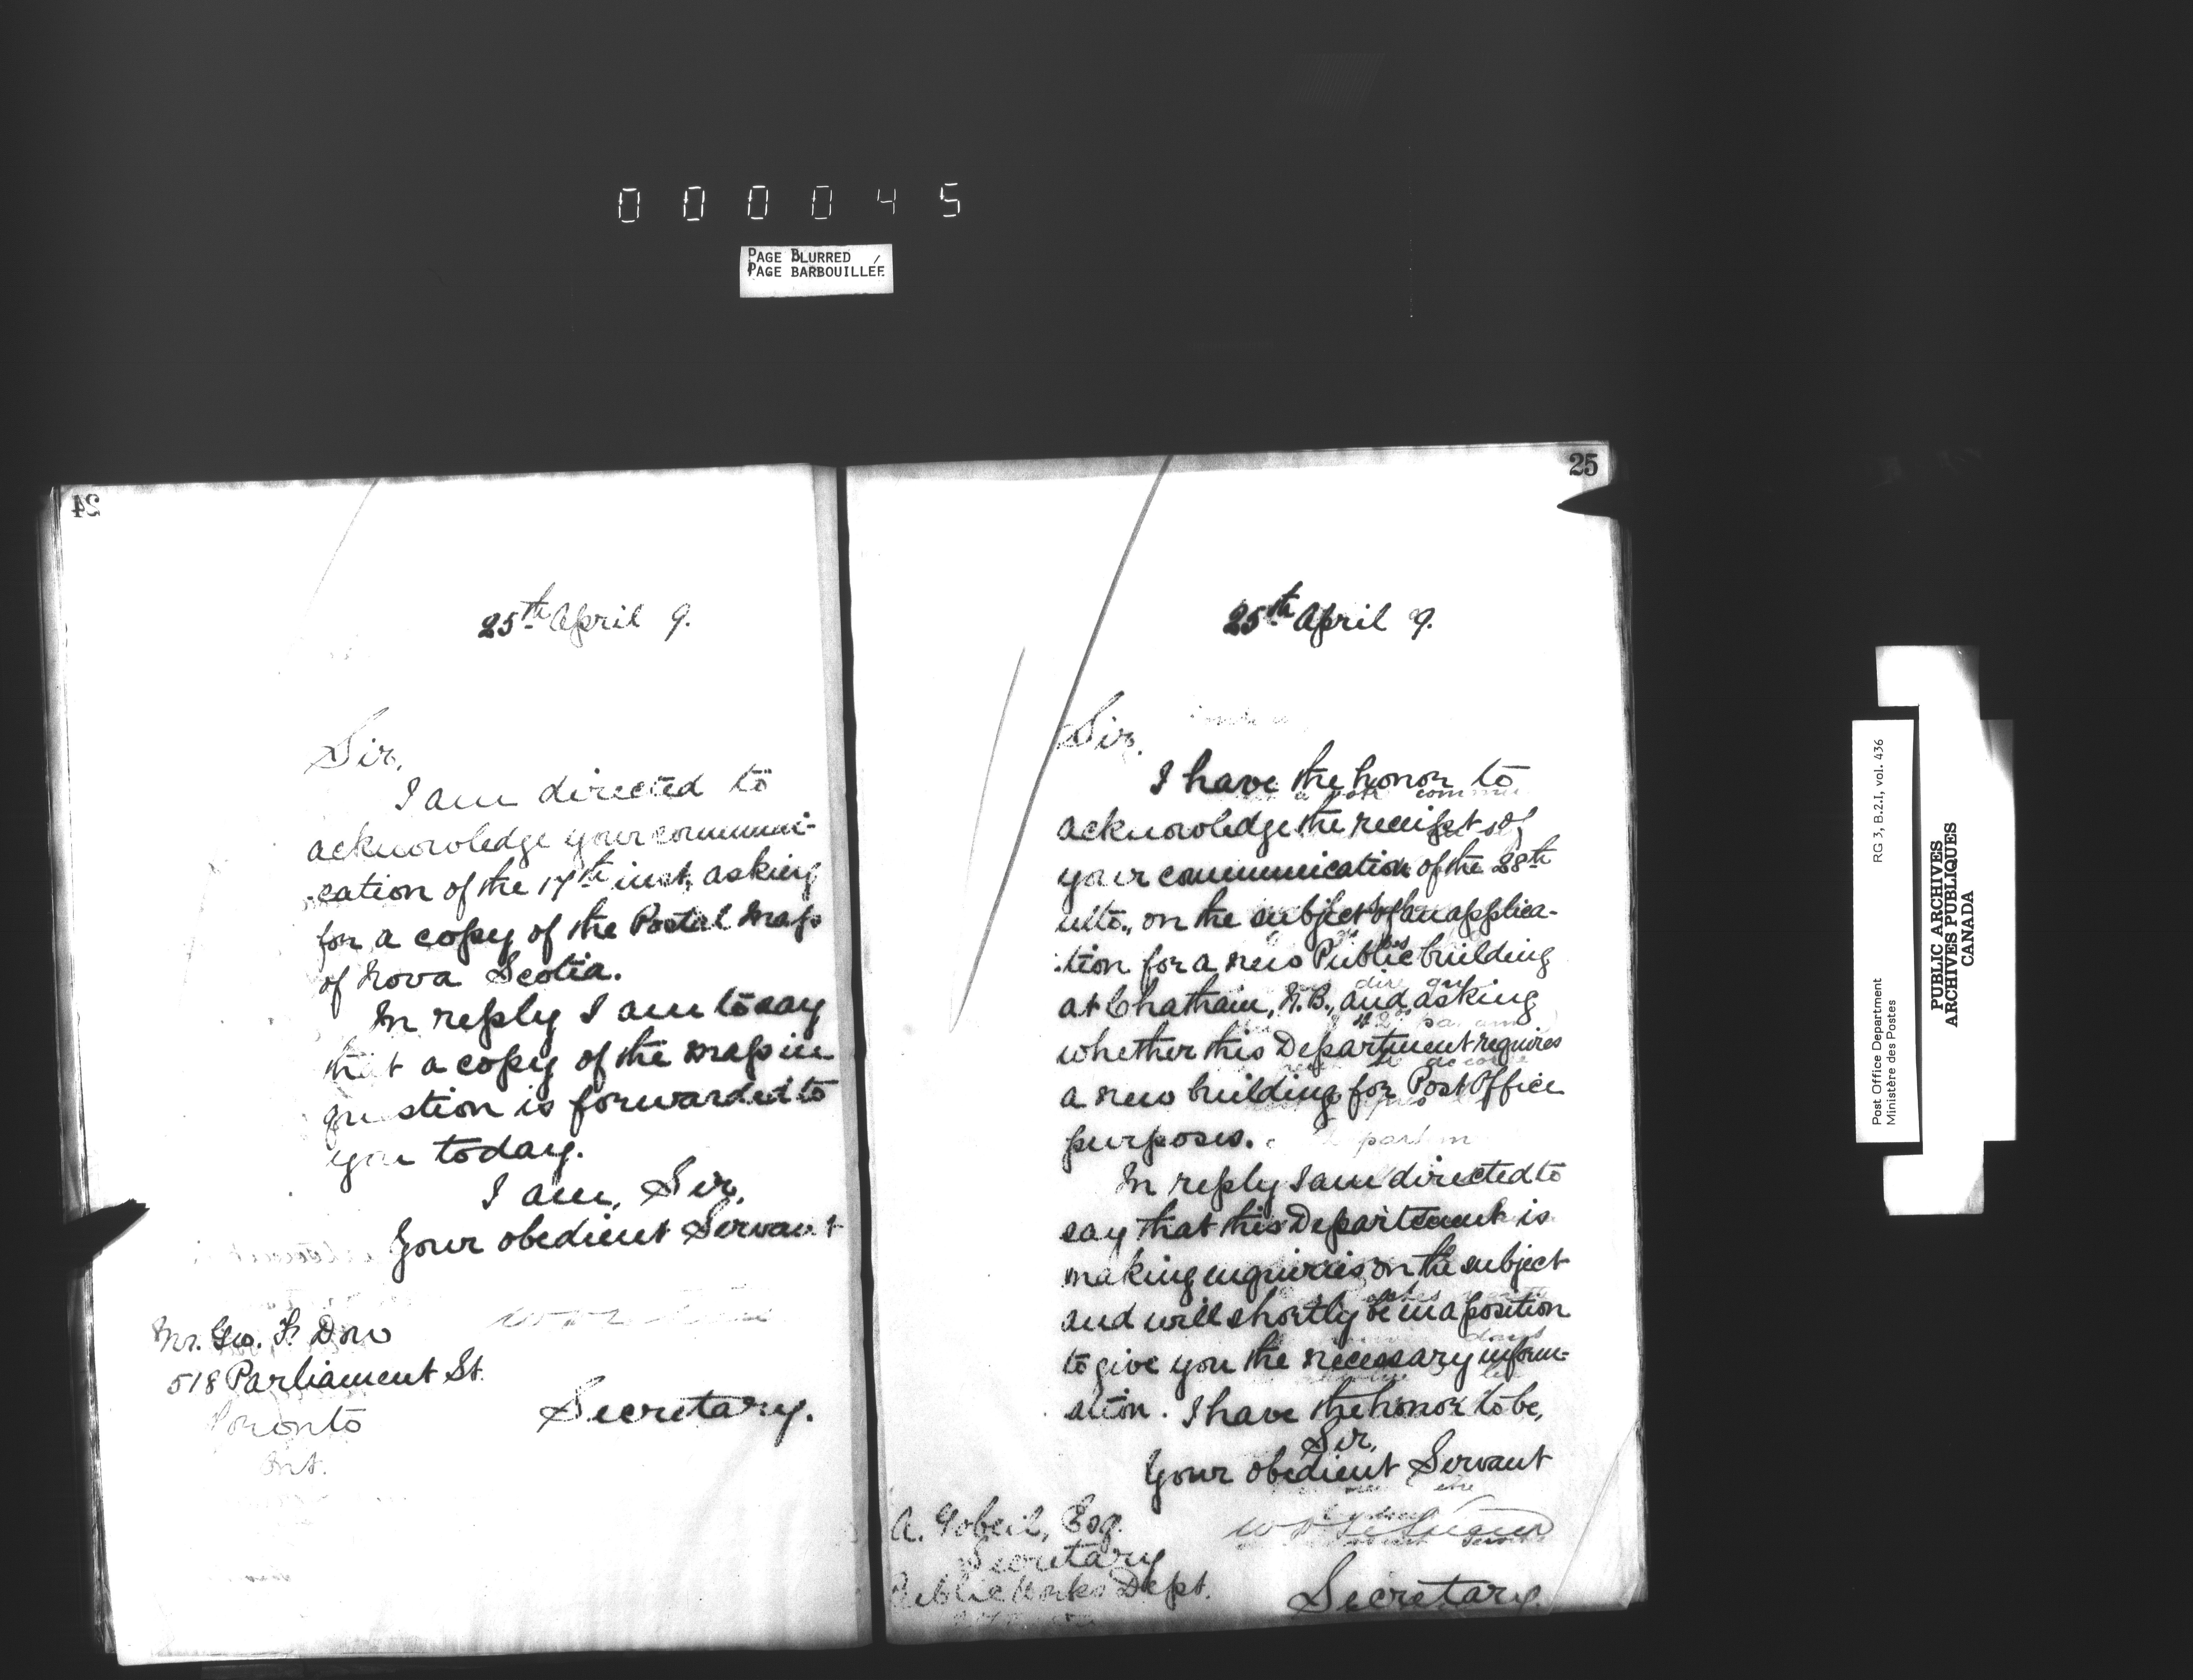 000045
PAGE BLURRED
PAGE BARBOUILLÉE
24
25th April 9.
Sir,
I am directed to
acknowledge your communi-
cation of the 17th inst, asking
for a copy of the Postal Map
of Nova Scotia.
In reply I am to say
that a copy of the map in
question is forwarded to
you today.
I am, Sir,
Your obedient Servant
Mr. Geo. F. Dow
518 Parliament St.
Toronto
Ont.
Secretary.
25
25th April 9.
Sir,
I have the honor to
acknowledge the receipt of
your communication of the 28th
ulto., on the subject of an applica-
tion for a new Public building
at Chatham, N.B., and asking
whether this Department requires
a new building for Post Office
purposes.
In reply I am directed to
say that this Department is
making enquiries on the subject
and will shortly be in a position
to give you the necessary inform-
ation. I have the honor to be,
Sir,
Your obedient Servant
A. Gobeil, Esq.
Secretary
Public Works Dept.
Secretary.
Post Office Department RG 3, B.2.I, vol. 436
Ministère des Postes
PUBLIC ARCHIVES
ARCHIVES PUBLIQUES
CANADA